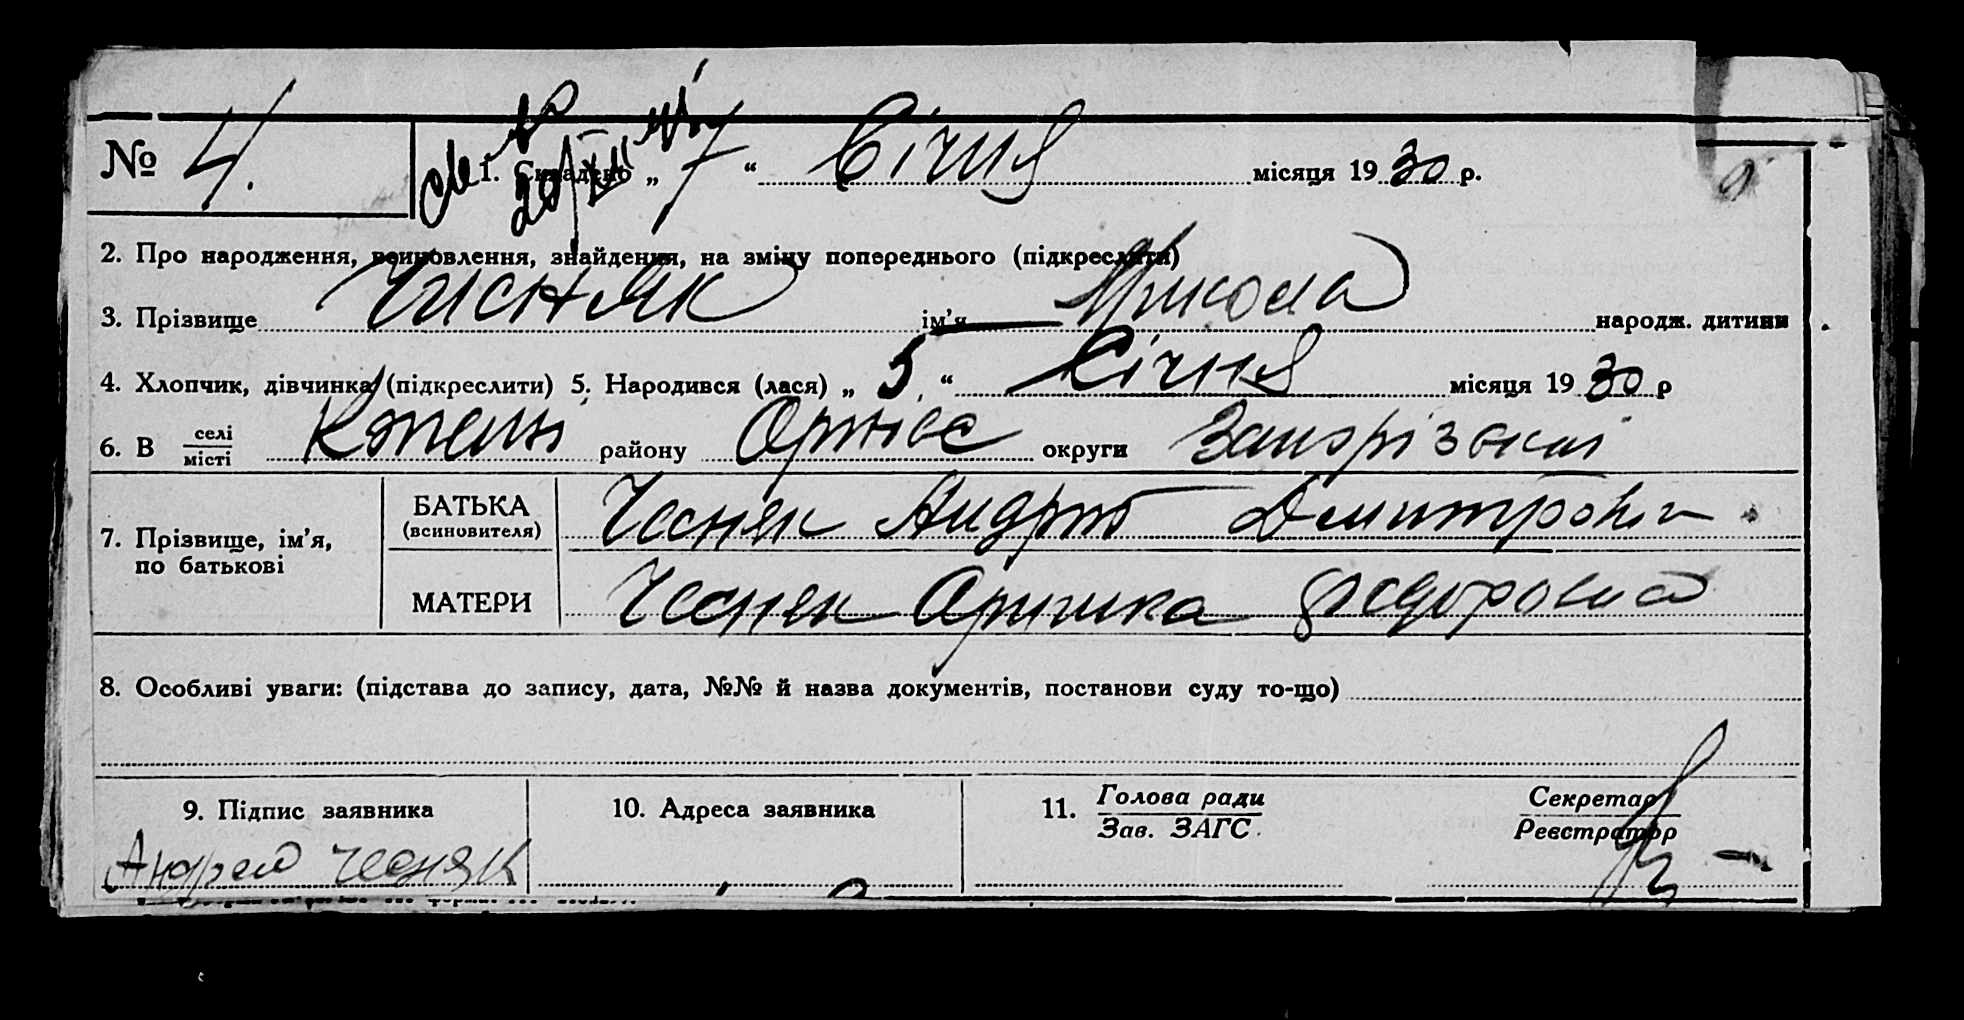 № 4. 1. Складено „ 7 “ Січня місяця 19 30 р.
2. Про народження, всиновлення, знайдення, на зміну попереднього (підкреслити)
3. Прізвище Чисняк ім'я Микола народж. дитини
4. Хлопчик, дівчинка (підкреслити) 5. Народився (лася) „ 5 “ Січня місяця 19 30 р
6. В селі
місті району округи
7. Прізвище, ім'я,
по батькові
БАТЬКА
(всиновителя)
Чесняк Андрій
МАТЕРИ
Чесняк Оришка Федоровна
8. Особливі уваги: (підстава до запису, дата, №№ й назва документів, постанови суду то-що)
9. Підпис заявника
Андрей Чесняк
10. Адреса заявника
11. Голова ради
Зав. ЗАГС.
Секретар
Реєстратор